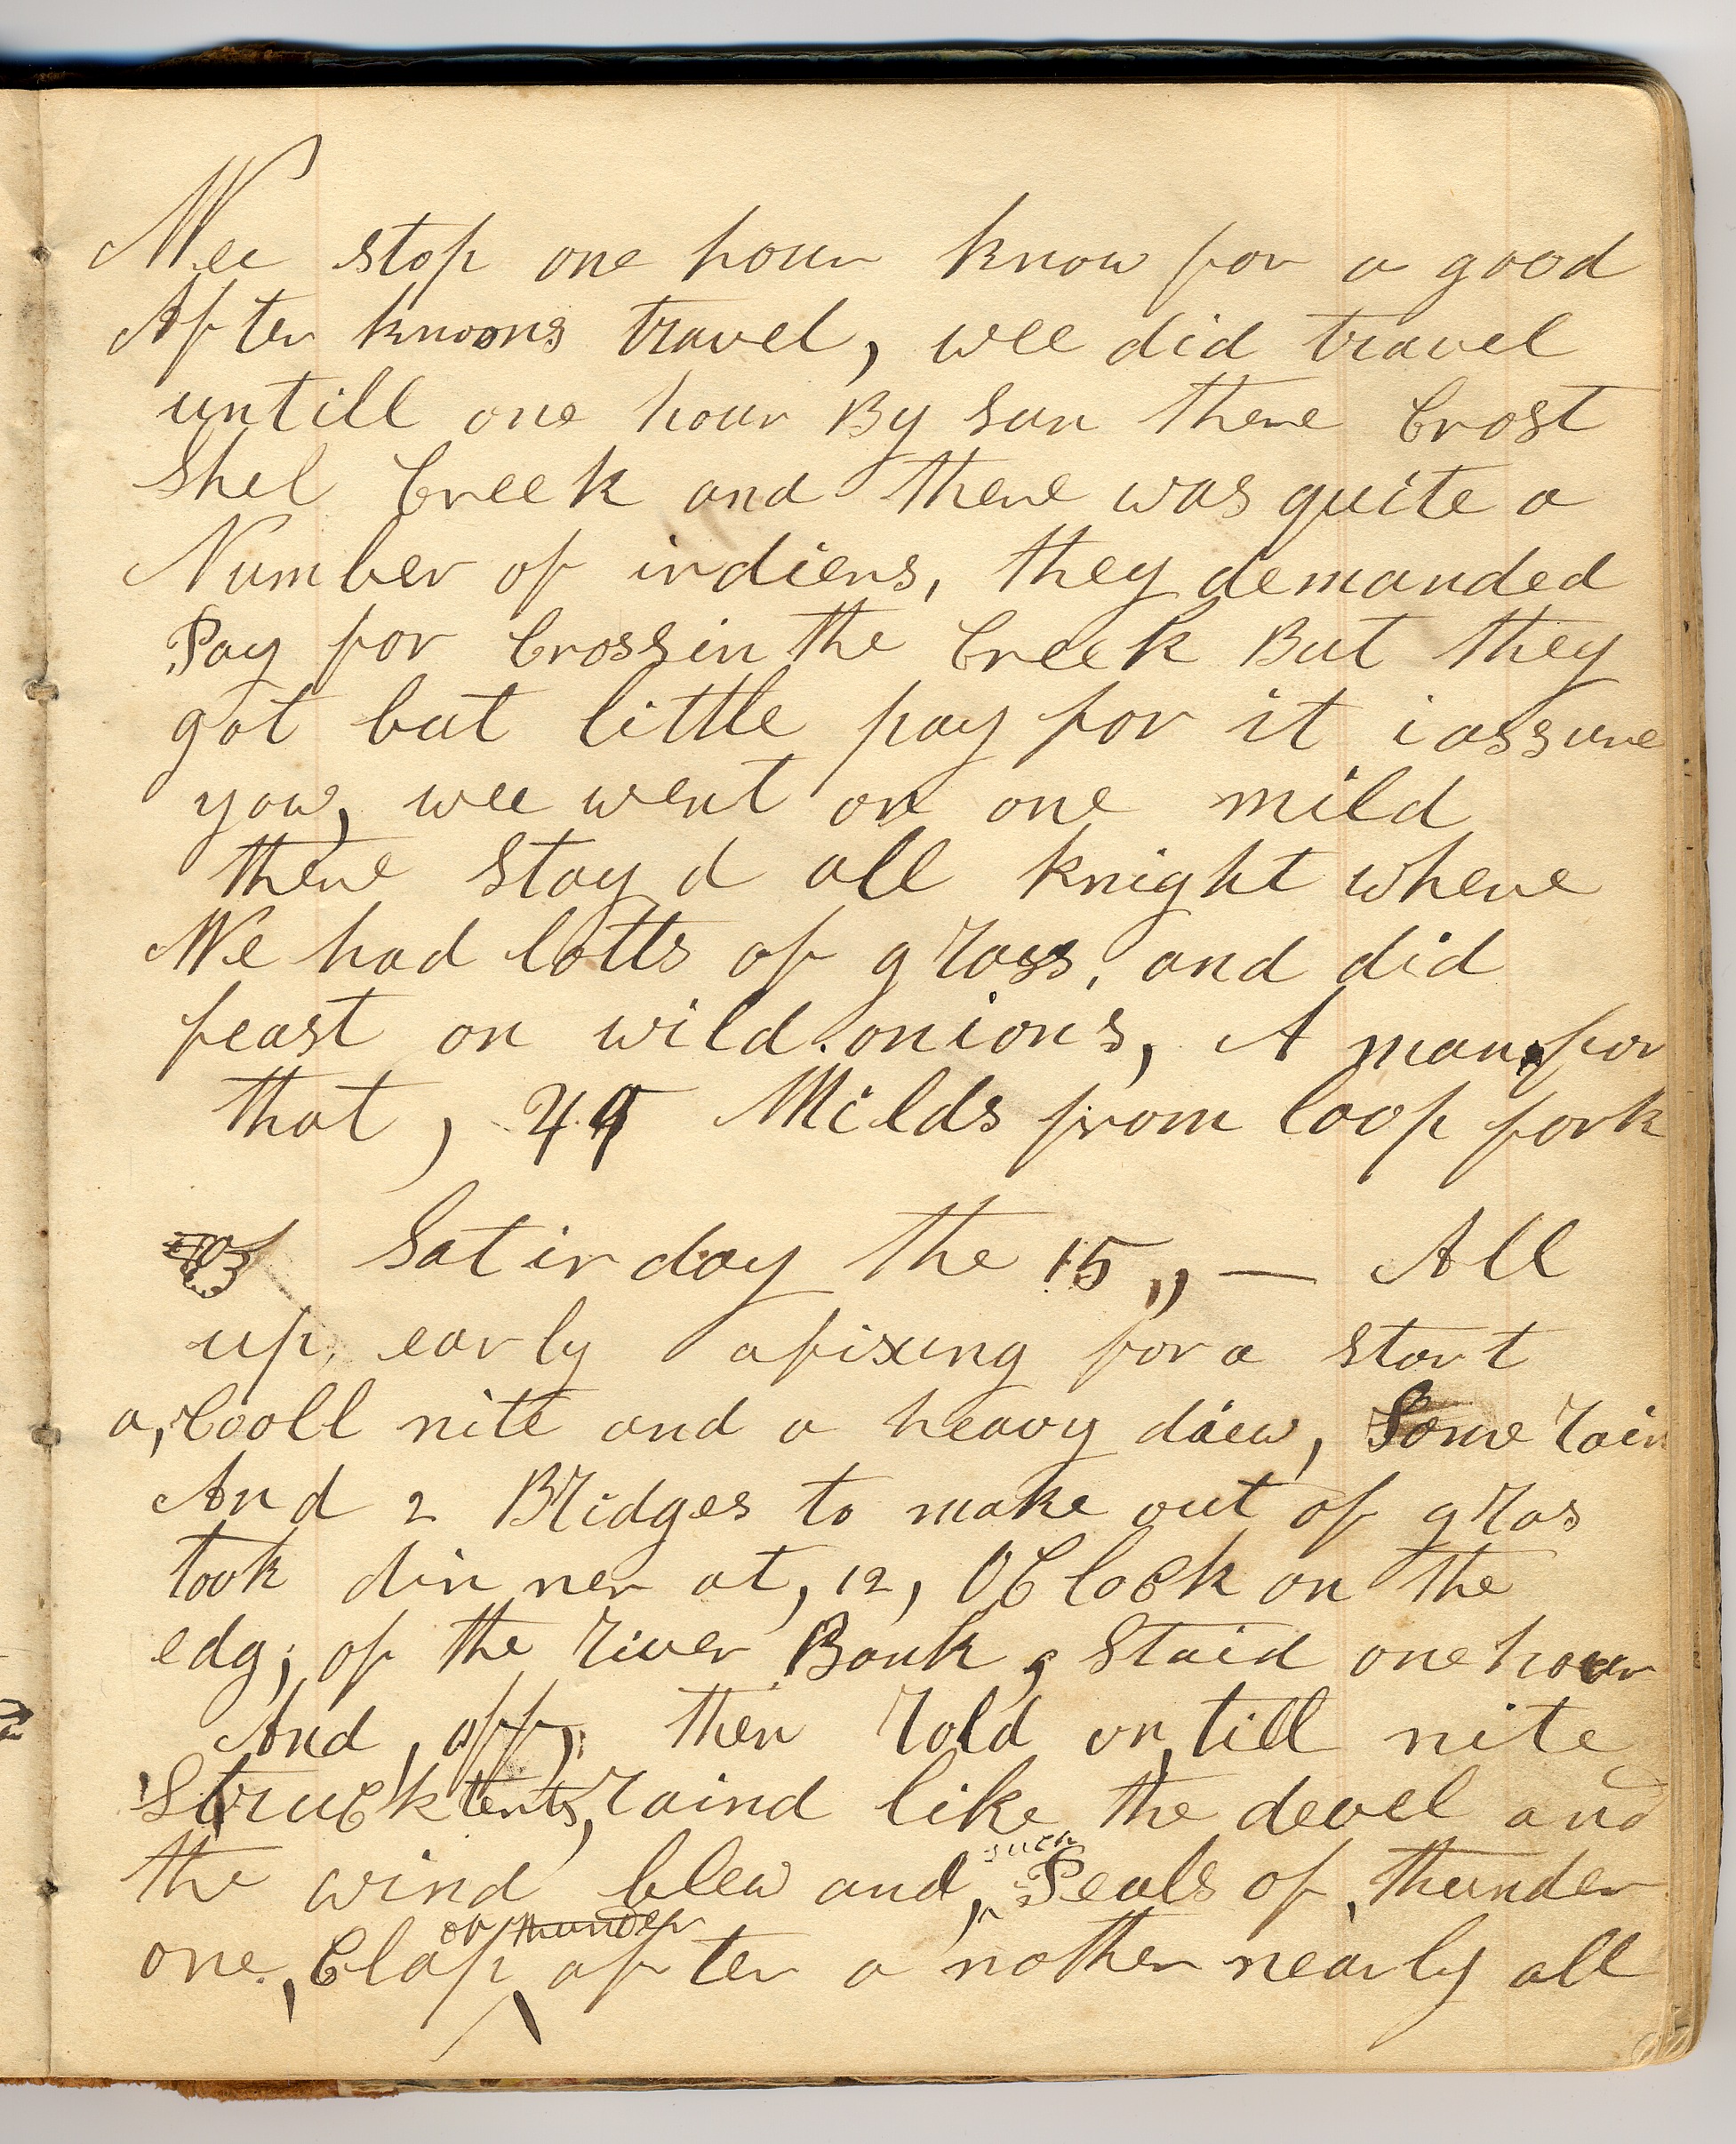 Wee stop one hour know for a good
After knoons travel, wee did travel
untill one hour By Sun there Crost
Shel Creek and there was quite a
Number of indiens, they demanded
Pay for Crossin the Creek But they
got but little pay for it i assure
yow, wee went on one mild
there Stayd all knight where
We had lotts of grass, and did
feast on wild onions, A man for
that, Milds from loop fork
Satirday the 15,, — All
up, early afixing for a start
a, Cooll nite and a heavy daew, Some rain
And 2 Bridges to make out of gras
took dinner at, 12, OClock on the
edg; of the river Bank, Staid one hour
And, off, then rold on, till nite
Struck tents, raind like the devel and
the wind blew and, such Peals of, thunder
one, Clap of thunder after a nother nearly all